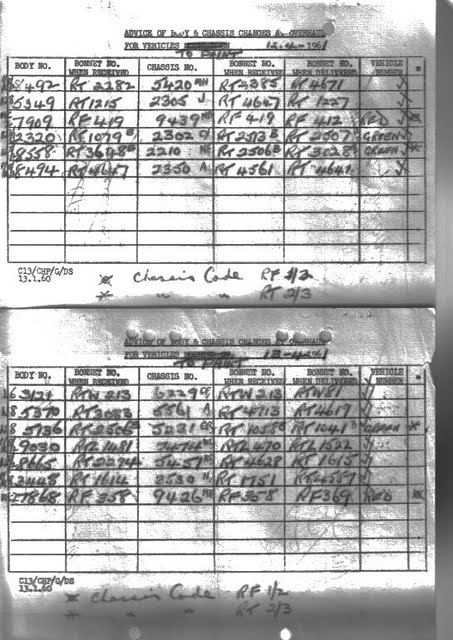 ADVICE OF BODY & CHASSIS CHANGES AT OVERHAUL
FOR VEHICLES 12-4-1961
TO PAINT
BODY NO. BONNET NO. WHEN RECEIVED CHASSIS NO. BONNET NO. WHEN RECEIVED BONNET NO. WHEN DELIVERED VEHICLE NUMBER *
8492 RT 2282 5420 RT 2385 RT 4671 ✓
5349 RT 1215 2305 J RT 4647 RT 1227 ✓
7909 RF 419 9439 RF 419 RF 412 RED
2320 RT 1079 B 2302 RT 2513 B RT 2507 B GREEN
8558 RT 3648 B 2210 RT 2506 B RT 3028 B GREEN *
8494 RT 4647 2350 A RT 4561 RT 4641 ✓
C13/CHP/G/DS
13.1.60
* Chassis Code RF 1/2
* " " RT 2/3
ADVICE OF BODY & CHASSIS CHANGES AT OVERHAUL
FOR VEHICLES 13-4-1961
TO PAINT
BODY NO. BONNET NO. WHEN RECEIVED CHASSIS NO. BONNET NO. WHEN RECEIVED BONNET NO. WHEN DELIVERED VEHICLE NUMBER *
3121 RTW 213 6229 RTW 213 RTW 81 ✓
5370 RT 3083 5561 A RT 4713 RT 4617 ✓
5136 RT 2506 B 5231 RT 1058 B RT 1041 B GREEN *
9030 RTL 1481 7474 RTL 470 RTL 1522 ✓
8665 RT 2294 5457 RT 4628 RT 1615 ✓
3448 RT 1614 2530 N RT 1751 RT 4557 ✓
7868 RF 358 9426 RF 358 RF 369 RED
C13/CHP/G/DS
13.1.60
* Chassis Code RF 1/2
* " " RT 2/3